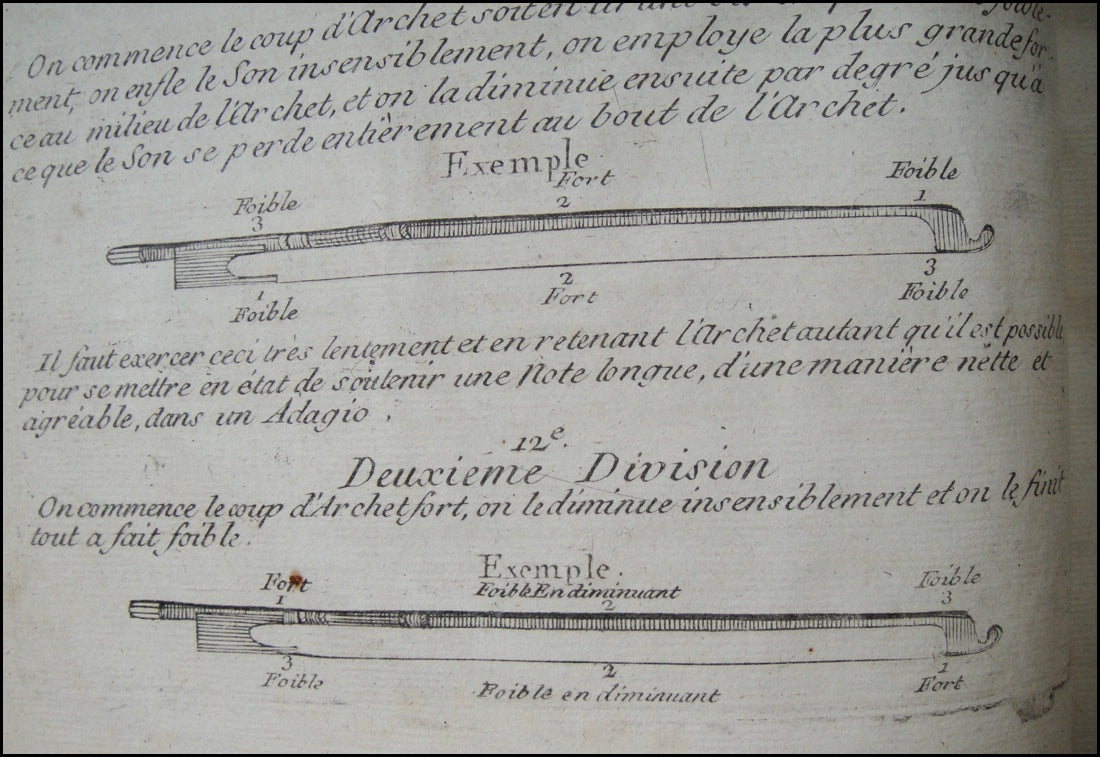 On commence le coup d'Archet soit en
ment, on enfle le Son insensiblement, on employe la plus grande for
ce au milieu de l'Archet, et on la diminue ensuite par degré jusqu'à
ce que le Son se perde entièrement au bout de l'Archet.
Exemple
Foible Fort Foible
3 2 1
1 2 3
Foible Fort Foible
Il faut exercer ceci très lentement et en retenant l'Archet autant qu'il est possible
pour se mettre en état de soûtenir une Note longue, d'une manière nètte et
agréable, dans un Adagio.
12e.
Deuxiéme Division
On commence le coup d'Archet fort, on le diminue insensiblement et on le finit
tout a fait foible.
Exemple.
Fort Foible En diminuant Foible
1 2 3
3 2 1
Foible Foible en diminuant Fort